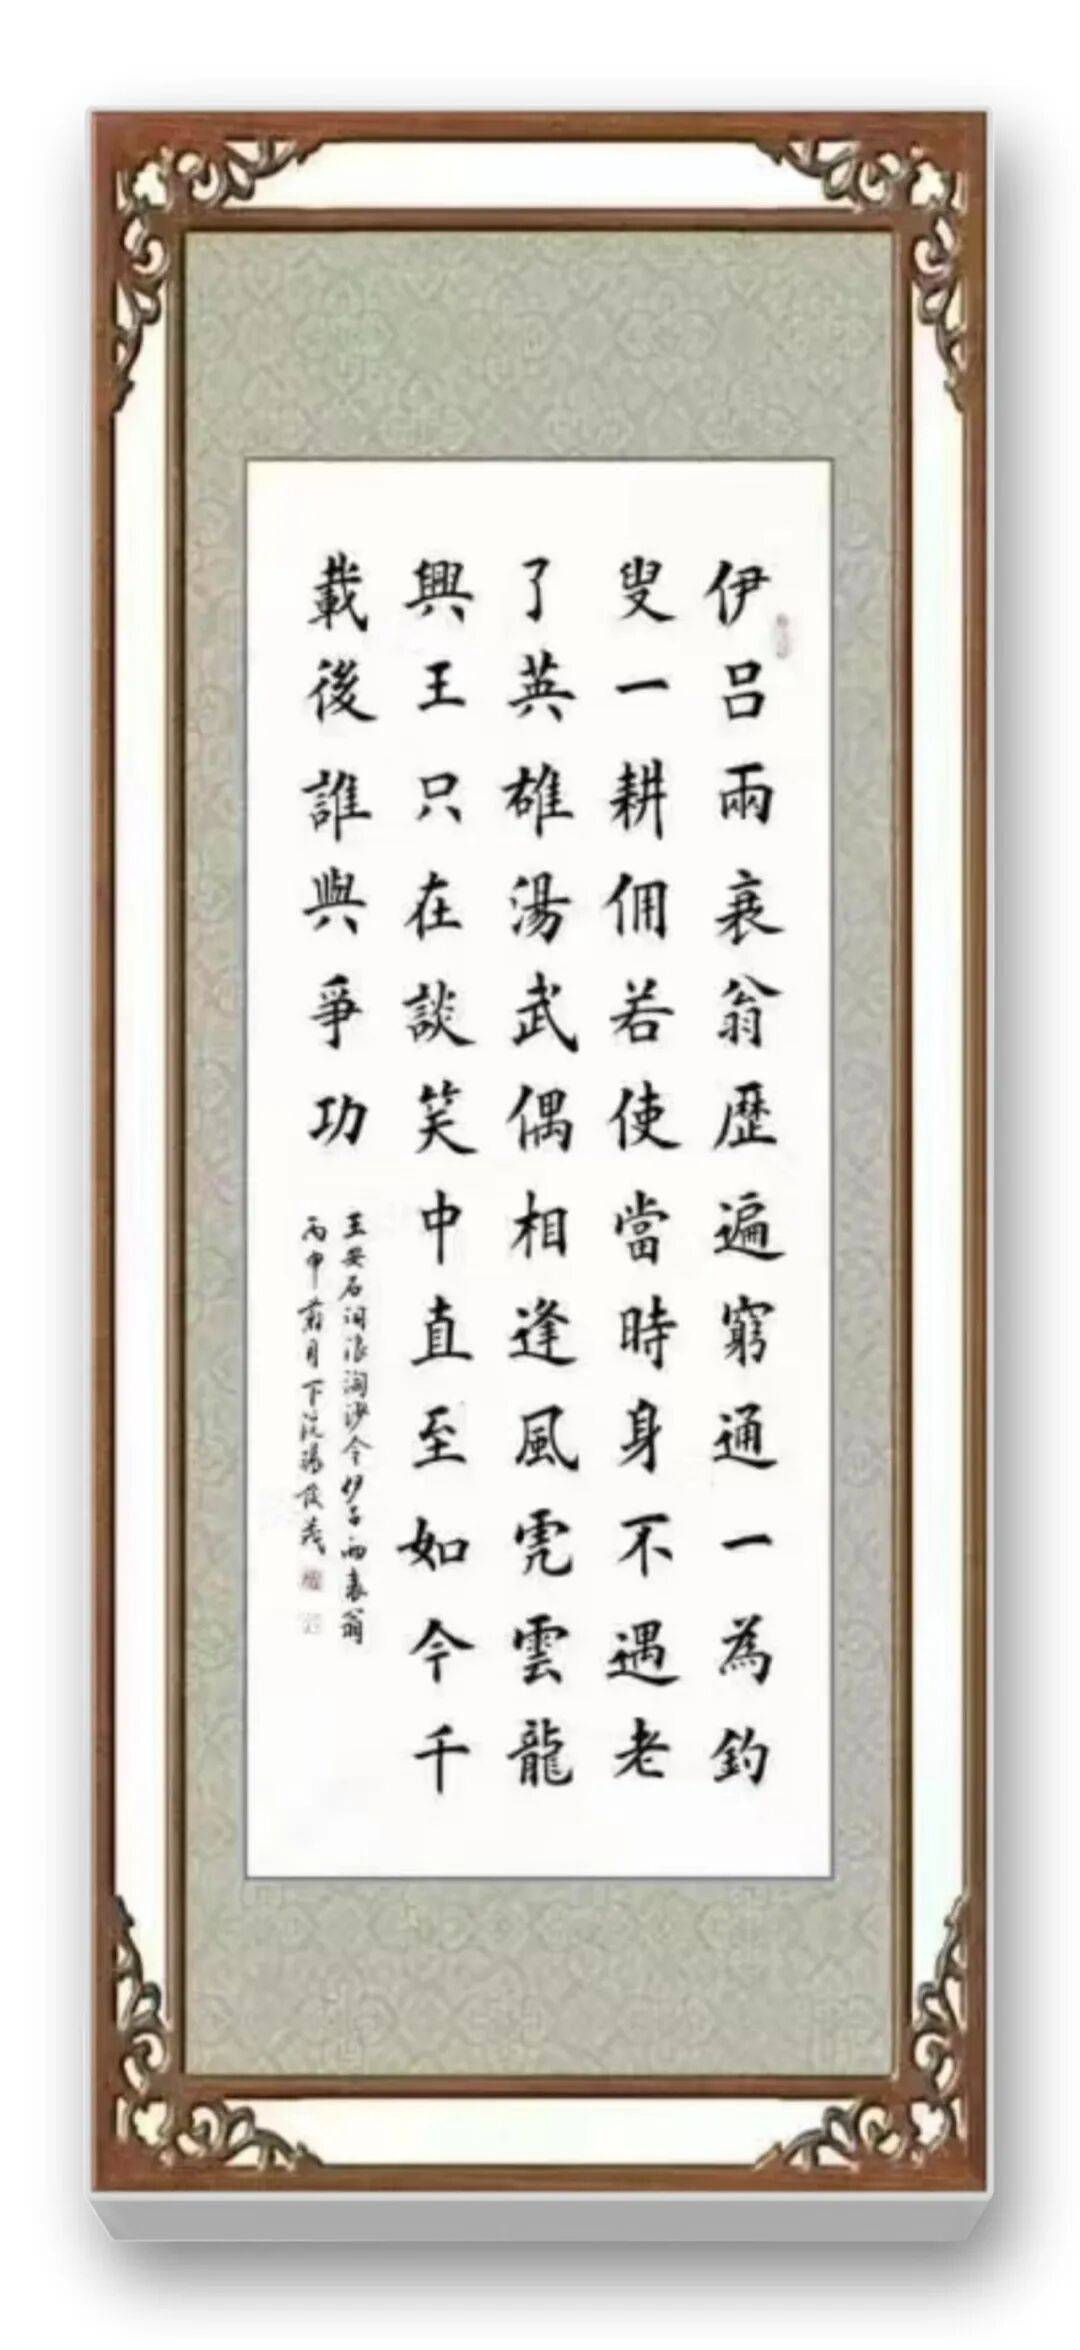 伊吕兩衰翁歷遍窮通一為釣
叟一耕佣若使當時身不遇老
了英雄湯武偶相逢風虎雲龍
興王只在談笑中直至如今千
載後誰與爭功
王安石词浪淘沙令伊吕兩衰翁
丙申月下浣